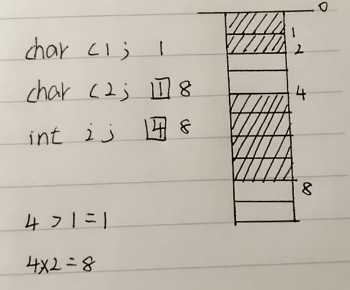 char c1; 1
char c2; 1 8
int i; 4 8
4 > 1 = 1
4x2=8
0
1
2
4
8